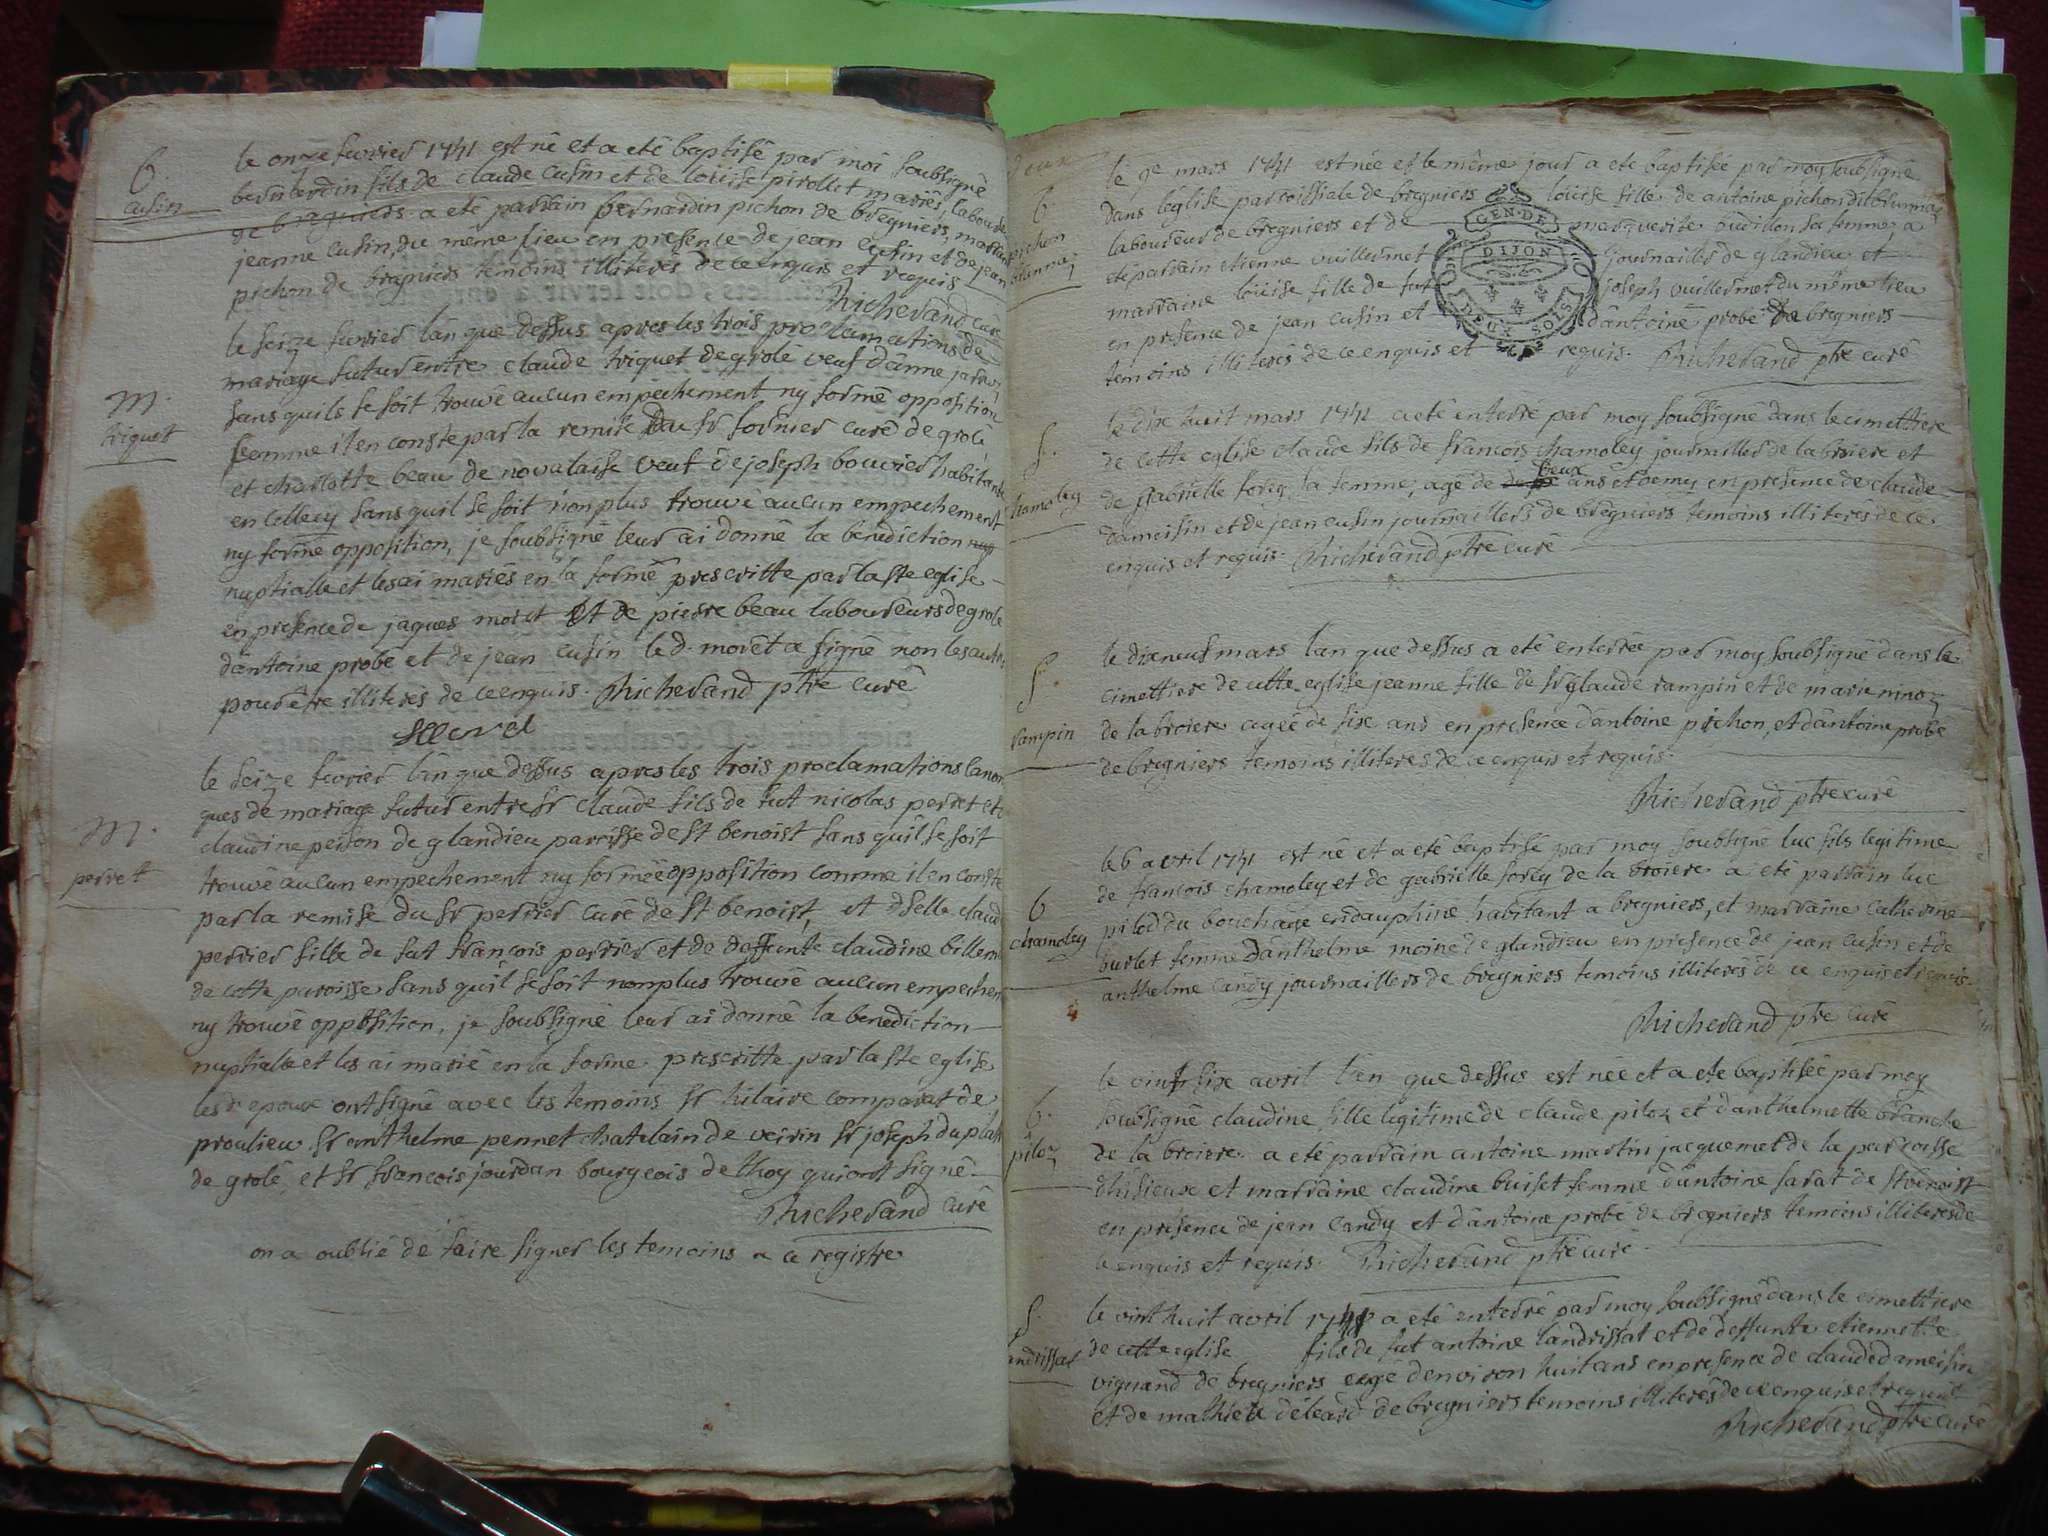 B.
cusin
le onze fevrier 1741 est né et a eté baptisé par moi soubsigné
bernardin fils de claude cusin et de loüise pirollet mariés, laboureurs
de bregniers. a eté parrain bernardin pichon de bregniers, marraine
jeanne cusin, du même lieu en presence de jean cusin et de jean
pichon de bregniers temoins illiterés de ce enquis et requis
Richerand curé
M.
triquet
le seize fevrier l'an que dessus apres les trois proclamations de
mariage futur entre claude triquet de grolé veuf d'anne
sans quils se soit trouvé aucun empechement ny formé opposition
comme il en conste par la remise du sr fornier curé de grolé
et charlotte beau de novalaise veuf de joseph bouvier habitante
en sans quil se soit non plus trouvé aucun empechement
ny formé opposition, je soubsigné leur ai donné la benediction
nuptialle et les ai mariés en la forme prescritte par la ste eglise
en presence de jaques moret et de pierre beau laboureurs de grolé
d'antoine probe et de jean cusin led. moret a signé non les autres
pour être illiterés de ce enquis. Richerand ptre curé
M.
perret
le seize fevrier l'an que dessus apres les trois proclamations canoni
ques de mariage futur entre sr claude fils de fut nicolas perret et
claudine peison de glandieu paroisse de st benoist sans quil se soit
trouvé aucun empechement ny formé opposition comme il en conste
par la remise du sr perrier curé de st benoist, et dselle claud
perrier fille de fut françois perrier et de deffunte claudine billem
de cette paroisse sans quil se soit non plus trouvé aucun empechem
ny trouvé opposition, je soubsigné leur ai donné la benediction
nuptialle et les ai marié en la forme prescritte par la ste eglise
les d epoux ont signé avec les temoins sr hilaire comparat de
proulieu sr anthelme pennet chatelain de veirin sr joseph duplatr
de grolé, et sr françois jourdan bourgeois de thoy qui ont signé
Richerand curé
on a oublié de faire signer les temoins a ce registre
deux
B.
pichon
le 9e mars 1741 est née et le même jour a eté baptisée par moy soubsigné
dans l'eglise parroissiale de bregniers loüise fille de antoine pichon dit
laboureur de bregniers et de marguerite oudillon sa femme, a
eté parrain etienne vuillermet journaillier de glandieu et
marraine loüise fille de fut joseph vuillermet du même lieu
en presence de jean cusin et d'antoine probe de bregniers
temoins illiterés de ce enquis et requis. Richerand ptre curé
GEN. DE
DIJON
DEUX SOLS
S.
hamoley
le dix huit mars 1741 a eté enterré par moy soubsigné dans le cimettiere
de cette eglise claude fils de françois chamoley journaillier de la broiere et
de gabrielle forey sa femme, agé de deux ans et demy en presence de claude
dameisin et de jean cusin journailliers de bregniers temoins illiterés de ce
enquis et requis. Richerand ptre curé
S.
rampin
le dixneuf mars l'an que dessus a eté enterrée par moy soubsigné dans le
cimettiere de cette eglise jeanne fille de sr glaude rampin et de marie
de la broiere agée de six ans en presence d'antoine pichon, et d'antoine probe
de bregniers temoins illiterés de ce enquis et requis.
Richerand ptre curé
B
chamoley
le 6 avril 1741 est né et a eté baptisé par moy soubsigné luc fils legitime
de françois chamoley et de gabrielle forey de la broiere a eté parrain luc
pilod du bouchage en dauphiné habitant a bregniers, et marraine catherine
burlet femme d'anthelme moine de glandieu en presence de jean cusin et de
anthelme candy journailliers de bregniers temoins illiterés de ce enquis et requis.
Richerand ptre curé
B.
piloz
le vint six avril l'an que dessus est née et a eté baptisée par moy
soubsigné claudine fille legitime de claude piloz et d'anthelmette branche
de la broiere. a eté parrain antoine martin jacquemet de la parroisse
d'hisieux et marraine claudine buiset femme d'antoine sarat de st benoist
en presence de jean candy et d'antoine probe de bregniers temoins illiterés de
ce enquis et requis. Richerand ptre curé.
S.
andrissat
le vint huit avril 1741 a eté enterré par moy soubsigné dans le cimettiere
de cette eglise fils de fut antoine landrissat et de deffunte etiennette
vignand de bregniers agé d'environ huit ans en presence de claude dameisin
et de mathieu deleard de bregniers temoins illiterés de ce enquis et requis
Richerand ptre curé